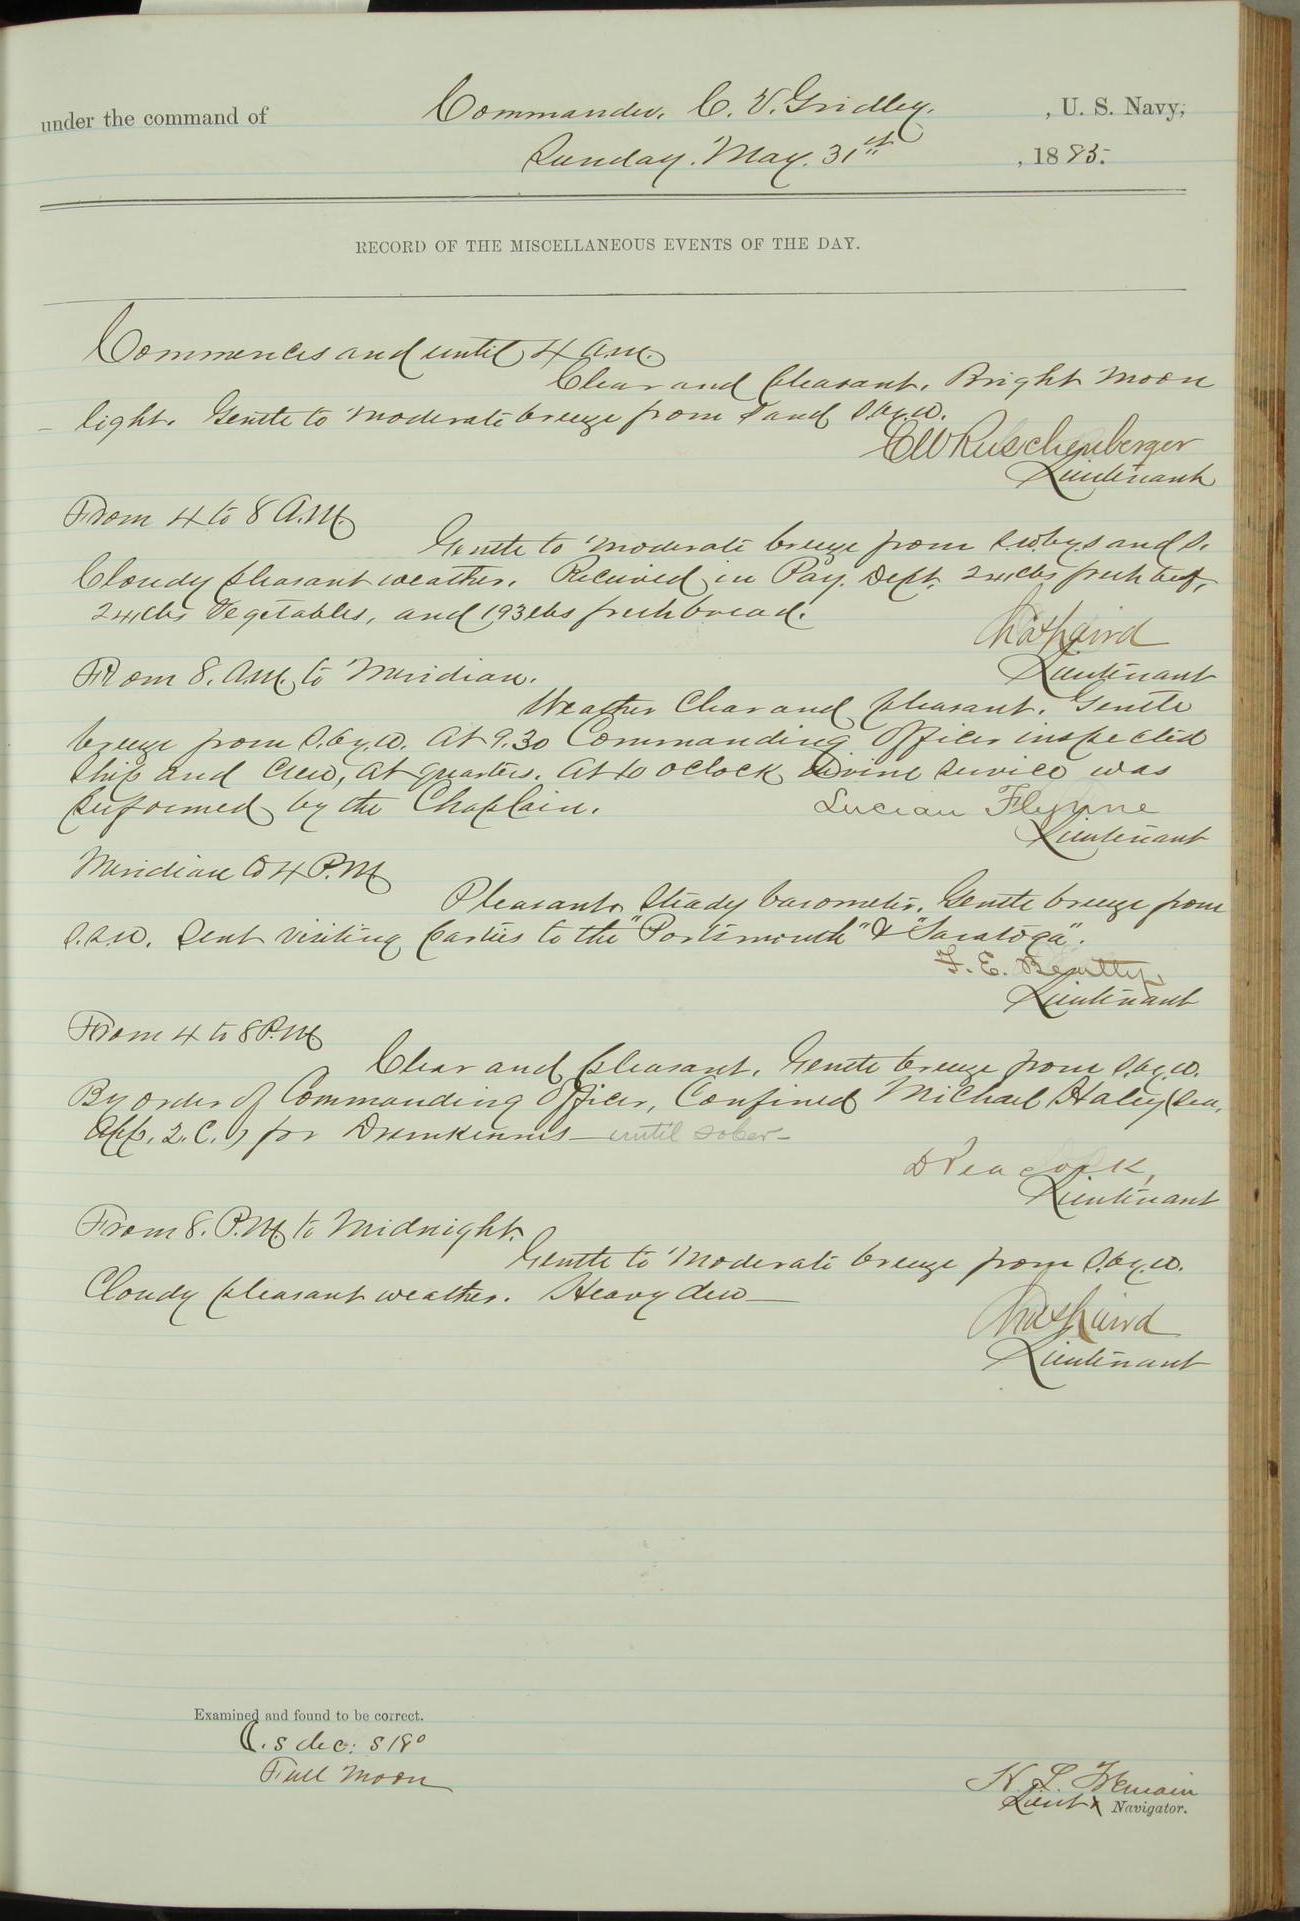 under the command of Commander. C. V. Gridley. , U. S. Navy,
Sunday. May. 31st , 1885.
RECORD OF THE MISCELLANEOUS EVENTS OF THE DAY.
Commences and until 4 a.m.
Clear and pleasant. Bright moon
light. Gentle to moderate breeze from S and S.by.W.
C W Ruschenberger
Lieutenant
From 4 to 8 A.M.
Gentle to moderate breeze from S.W.by.S and S.
Cloudy pleasant weather. Received in Pay. Dept. 241 lbs fresh beef,
241 lbs Vegetables, and 193 lbs fresh bread.
Chas Laird
Lieutenant
From 8. A.M. to Meridian.
Weather Clear and pleasant. Gentle
breeze from S.by.W. At 9.30 Commanding Officer inspected
ship and crew, at quarters. At 10 oclock divine service was
performed by the Chaplain.
Lucian Flynne
Lieutenant
Meridian to 4 P.M
Pleasant. Steady barometer. Gentle breeze from
S.S.W. Sent visiting parties to the "Portsmouth" & "Saratoga".
F. E. Beatty,
Lieutenant
From 4 to 8 P.M
Clear and pleasant. Gentle breeze from S.by.W.
By order of Commanding Officer, Confined Michael Haley (Sea.
App. 2. C.) for Drunkenness — until sober —
D Peacock,
Lieutenant
From 8. P.M. to Midnight.
Gentle to moderate breeze from S.by.W.
Cloudy pleasant weather. Heavy dew —
Chas Laird
Lieutenant
Examined and found to be correct.
☾.s dec: S 18°
Full Moon
Lieut Navigator.